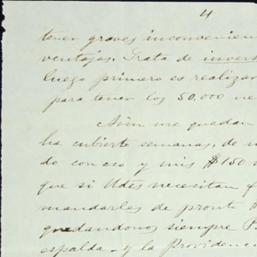 4
tener graves inconvenien
ventajas. Trata de inver
luego primero es realizar
para tener los 50.000 ne
Aún me quedan
ha cubierto semanas, de
do con eso y mis $150
que si Udes necesitan
mandarles de pronto
quedandonos siempre
espalda. y la Providenc